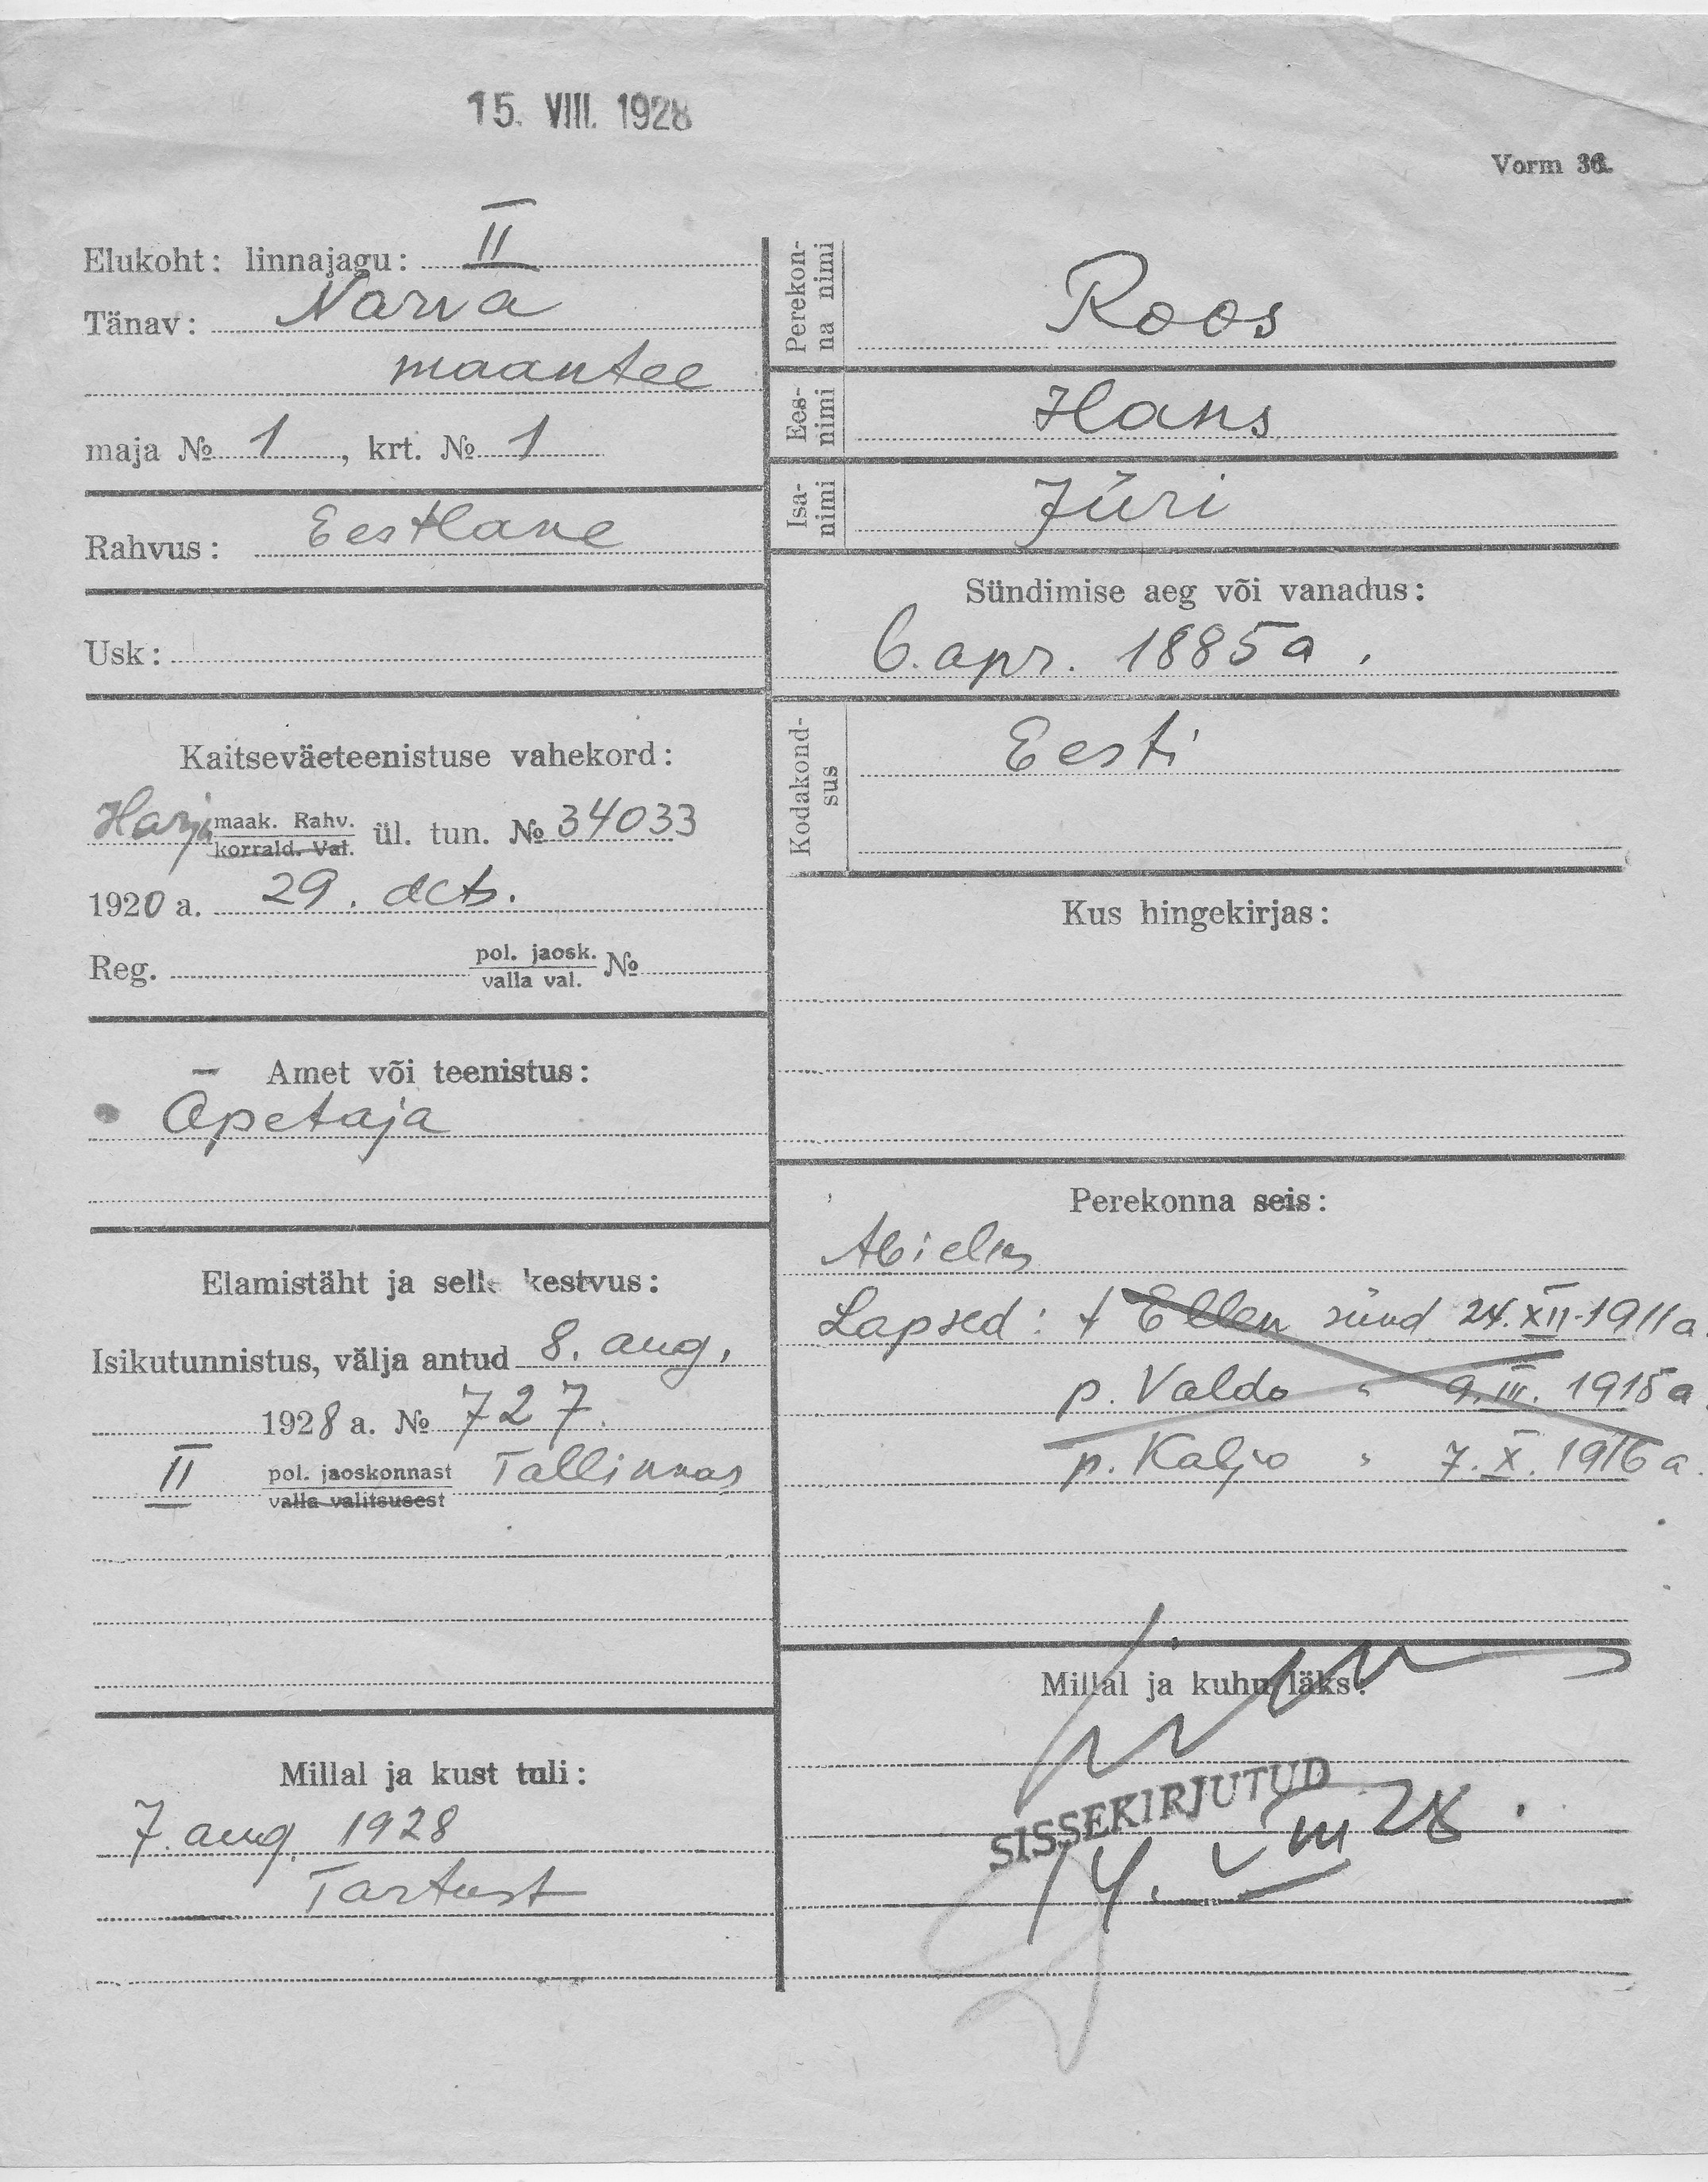 15. VIII. 1928
Vorm 36.
Elukoht: linnajagu: II
Tänav: Narva
maantee
maja № 1, krt. № 1
Rahvus: Eestlane
Usk:
Kaitseväeteenistuse vahekord:
Harju maak. Rahv. ül. tun. № 34033
korrald. Val.
1920 a. 29. dets.
Reg. pol. jaosk. №
valla val.
Amet või teenistus:
Õpetaja
Elamistäht ja selle kestvus:
Isikutunnistus, välja antud 8. aug.
1928 a. № 727.
II pol. jaoskonnast Tallinnas
valla valitsusest
Millal ja kust tuli:
7. aug. 1928
Tartust
Perekon-
na nimi
Roos
Ees-
nimi
Hans
Isa-
nimi
Jüri
Sündimise aeg või vanadus:
6. apr. 1885 a.
Kodakond-
sus
Eesti
Kus hingekirjas:
Perekonna seis:
Abielus
Lapsed: t Ellen sünd 24.XII.1911 a.
p. Valdo " 9.III.1915 a.
p. Kaljo " 7.X.1916 a.
Millal ja kuhu läks:
SISSEKIRJUTUD
14. VIII 28.